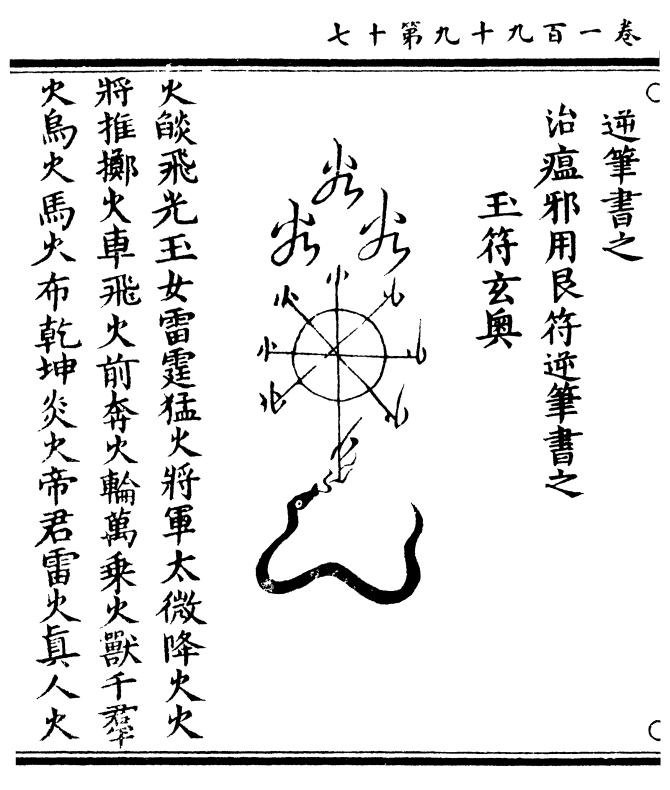 卷一百九十九第十七
逆筆書之
治瘟邪用艮符逆筆書之
玉符玄奧
火燄飛光玉女雷霆猛火將軍太微降火火
將推擲火車飛火前奔火輪萬乘火獸千羣
火鳥火馬火布乾坤炎火帝君雷火真人火